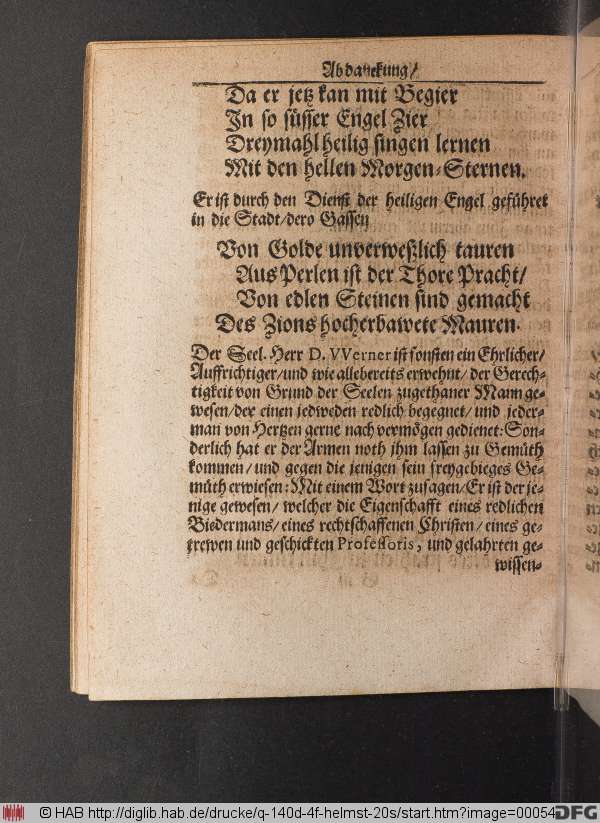 Abdanckung/
Da er jetz kan mit Begier
In so süsser Engel Zier
Dreymahl heilig singen lernen
Mit den hellen Morgen-Sternen.
Er ist durch den Dienst der heiligen Engel geführet
in die Stadt/dero Gassen
Von Golde unverweßlich tauren
Aus Perlen ist der Thore Pracht/
Von edlen Steinen sind gemacht
Des Zions hocherbawete Mauren.
Der Seel. Herr D. VVerner ist sonsten ein Ehrlicher/
Auffrichtiger/und wie allebereits erwehnt/der Gerech-
tigkeit von Grund der Seelen zugethaner Mann ge-
wesen/der einen jedweden redlich begegnet/und jeder-
man von Hertzen gerne nach vermögen gedienet: Son-
derlich hat er der Armen noth jhm lassen zu Gemüth
kommen/und gegen die jenigen sein freygebieges Ge-
müth erwiesen: Mit einem Wort zusagen/Er ist der je-
nige gewesen/ welcher die Eigenschafft eines redlichen
Biedermans/eines rechtschaffenen Christen/ eines ge-
trewen und geschickten Professoris, und gelahrten ge-
wissen-
© HAB http://diglib.hab.de/drucke/q-140d-4f-helmst-20s/start.htm?image=00054
DFG